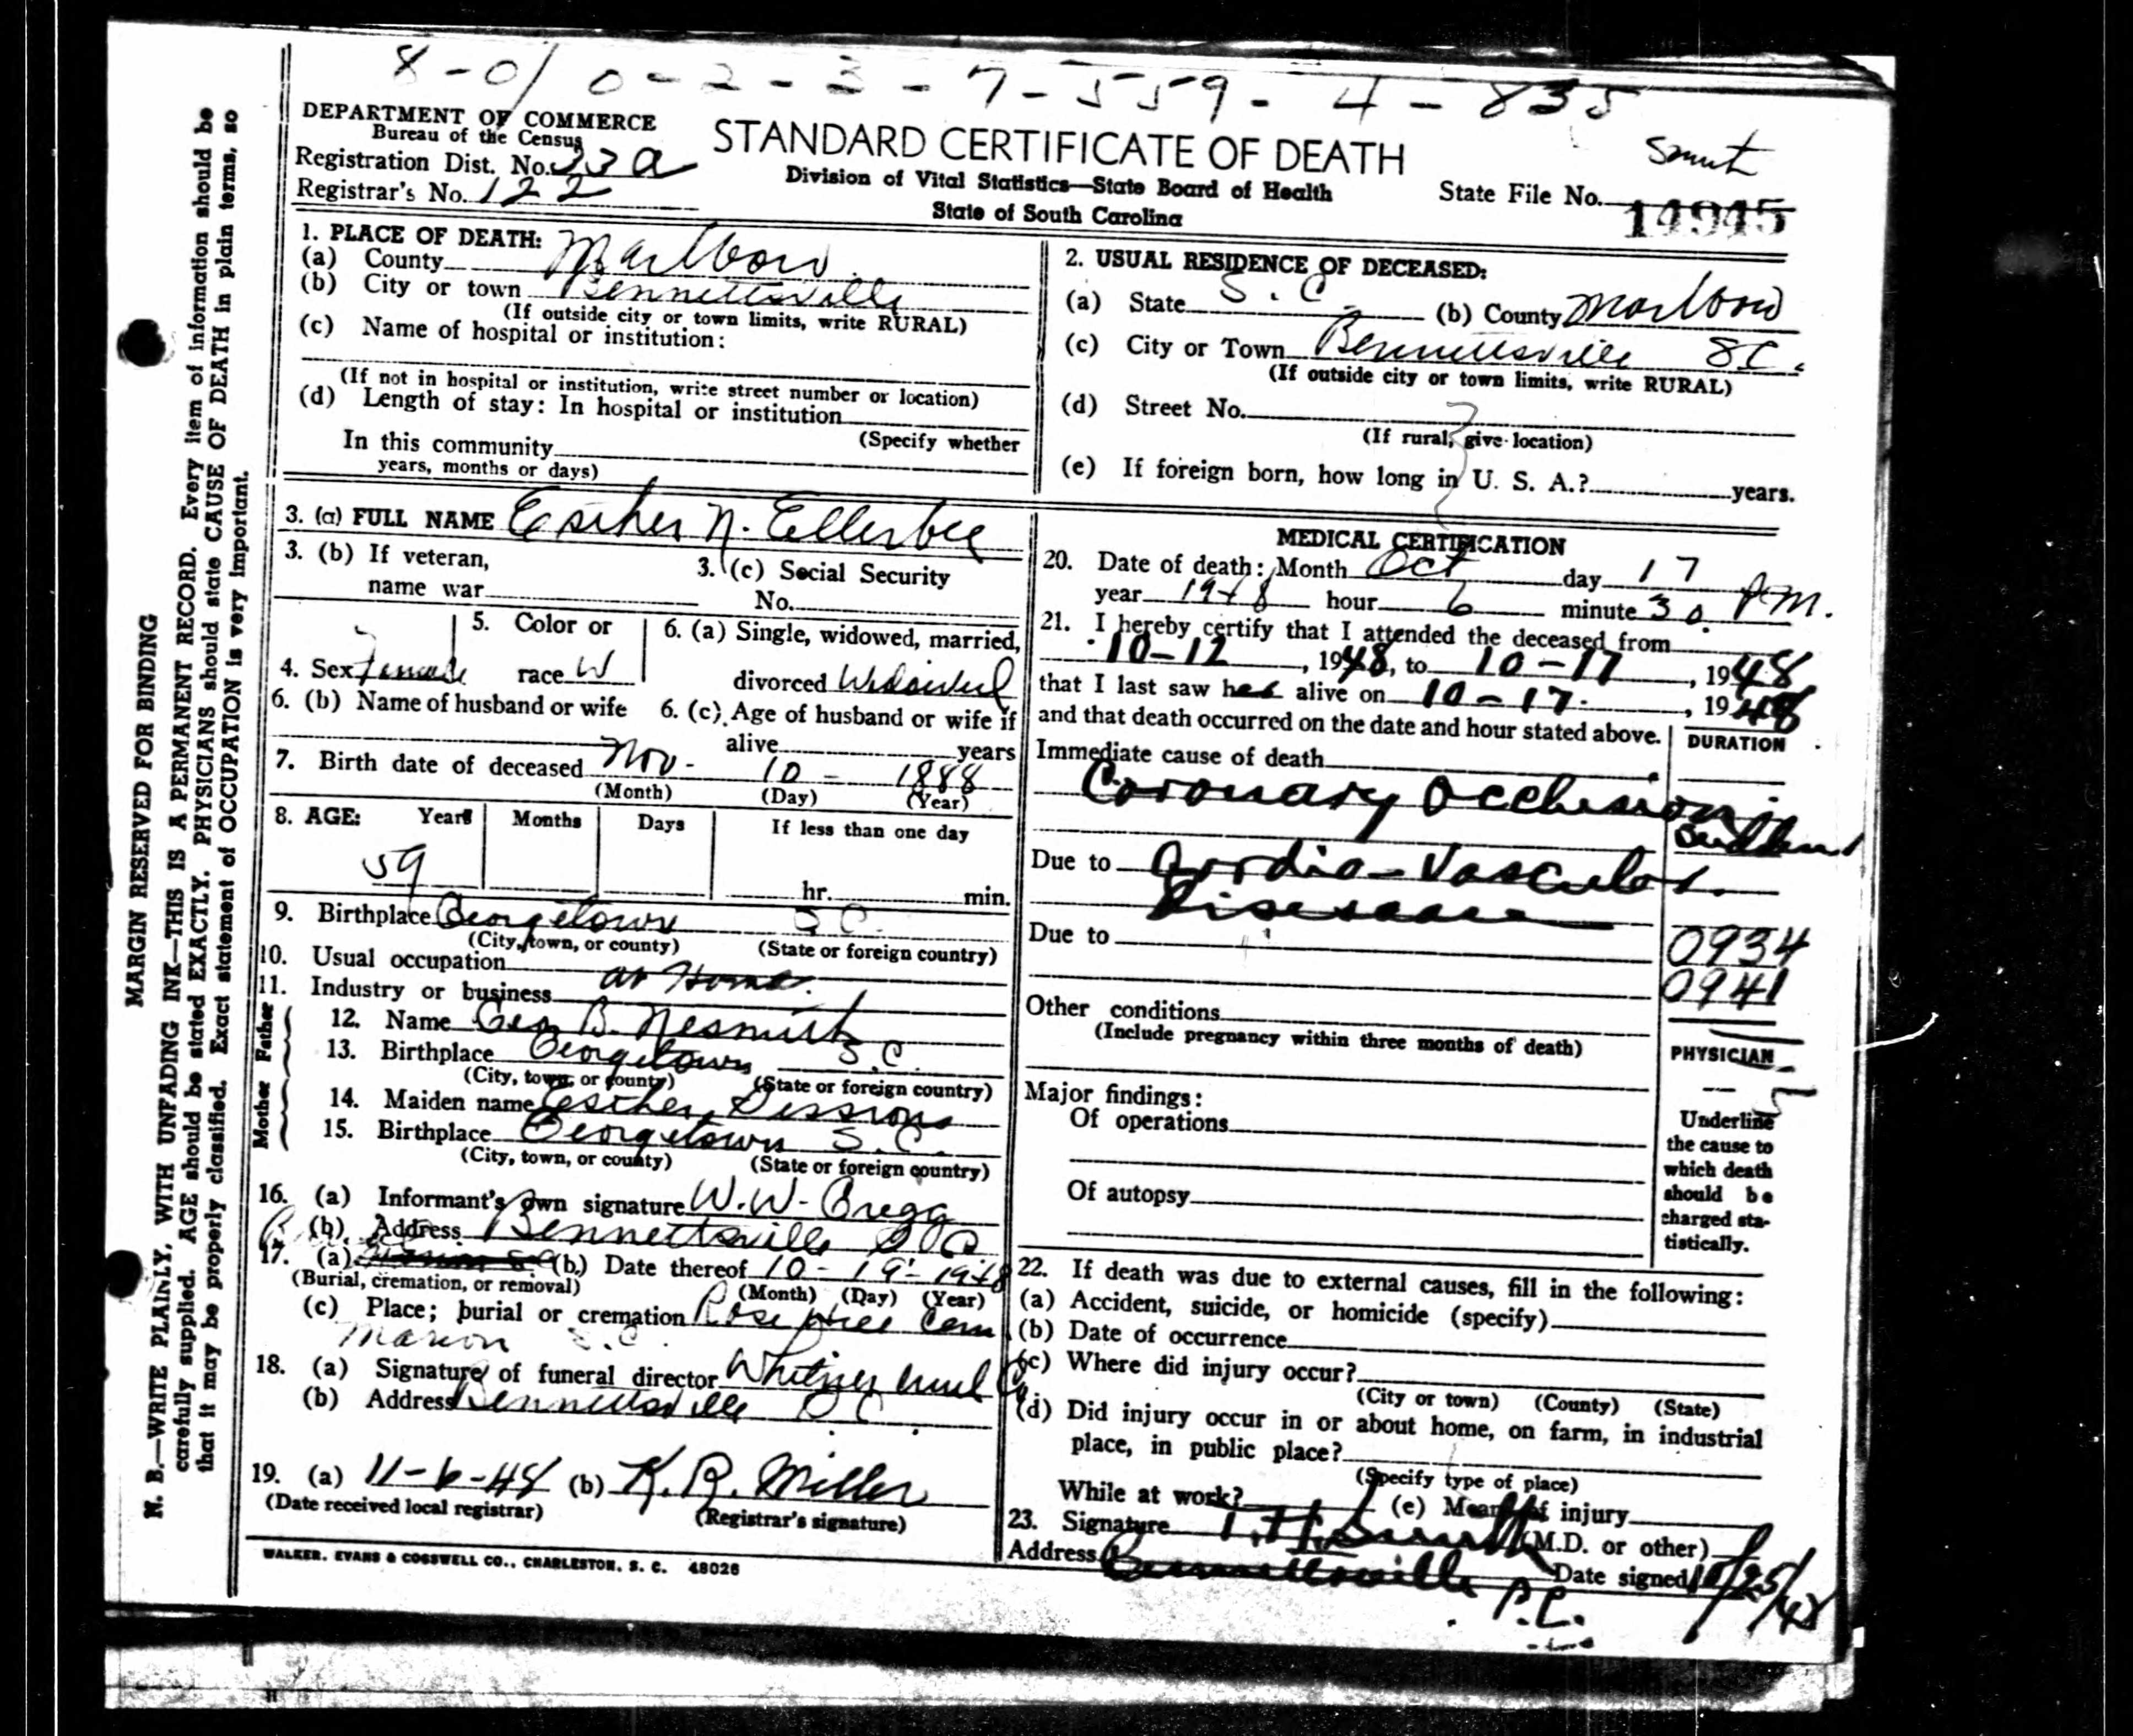 8-0/ 0-2-3-7-559-4-835
DEPARTMENT OF COMMERCE
Bureau of the Census
Registration Dist. No. 33a
Registrar's No. 122
STANDARD CERTIFICATE OF DEATH
Division of Vital Statistics—State Board of Health
State of South Carolina
State File No. 14945
1. PLACE OF DEATH:
(a) County Marlboro
(b) City or town Bennettsville
(If outside city or town limits, write RURAL)
(c) Name of hospital or institution:
(If not in hospital or institution, write street number or location)
(d) Length of stay: In hospital or institution
(Specify whether
In this community
years, months or days)
2. USUAL RESIDENCE OF DECEASED:
(a) State S. C. (b) County Marlboro
(c) City or Town Bennettsville S.C.
(If outside city or town limits, write RURAL)
(d) Street No.
(If rural, give location)
(e) If foreign born, how long in U. S. A.? years.
3. (a) FULL NAME Esther N. Ellerbee
3. (b) If veteran,
name war
3. (c) Social Security
No.
4. Sex Female
5. Color or
race W
6. (a) Single, widowed, married,
divorced Widowed
6. (b) Name of husband or wife
6. (c) Age of husband or wife if
alive years
7. Birth date of deceased Nov - 10 - 1888
(Month) (Day) (Year)
8. AGE: Years Months Days If less than one day
59 hr. min.
9. Birthplace Georgetown S C
(City, town, or county) (State or foreign country)
10. Usual occupation
11. Industry or business at Home.
Father
12. Name Geo B. Nesmith
13. Birthplace Georgetown S.C.
(City, town, or county) (State or foreign country)
Mother
14. Maiden name Esther Sessions
15. Birthplace Georgetown S.C.
(City, town, or county) (State or foreign country)
16. (a) Informant's own signature W. W. Gregg
(b) Address Bennettsville S C
17. (a) (b) Date thereof 10-19-1948
(Burial, cremation, or removal) (Month) (Day) (Year)
(c) Place; burial or cremation Rose Hill Cem
Marion S.C.
18. (a) Signature of funeral director
(b) Address Bennettsville S C
19. (a) 11-6-48 (b) K. R. Miller
(Date received local registrar) (Registrar's signature)
WALKER, EVANS & COGSWELL CO., CHARLESTON, S. C. 48026
MEDICAL CERTIFICATION
20. Date of death: Month Oct day 17
year 1948 hour 6 minute 30 P.M.
21. I hereby certify that I attended the deceased from
10-12, 1948, to 10-17, 1948
that I last saw her alive on 10-17, 1948
and that death occurred on the date and hour stated above.
DURATION
Immediate cause of death
Coronary Occlusion
Sudden
Due to Cardio-Vascular
Disease
Due to
0934
0941
Other conditions
(Include pregnancy within three months of death)
PHYSICIAN
Major findings:
Of operations
Of autopsy
Underline
the cause to
which death
should be
charged sta-
tistically.
22. If death was due to external causes, fill in the following:
(a) Accident, suicide, or homicide (specify)
(b) Date of occurrence
(c) Where did injury occur?
(City or town) (County) (State)
(d) Did injury occur in or about home, on farm, in industrial
place, in public place?
(Specify type of place)
While at work? (e) Means of injury
23. Signature Smith (M.D. or other)
Address Bennettsville S.C. Date signed 10/25/48
MARGIN RESERVED FOR BINDING
N. B.—WRITE PLAINLY, WITH UNFADING INK—THIS IS A PERMANENT RECORD. Every item of information should be
carefully supplied. AGE should be stated EXACTLY. PHYSICIANS should state CAUSE OF DEATH in plain terms, so
that it may be properly classified. Exact statement of OCCUPATION is very important.